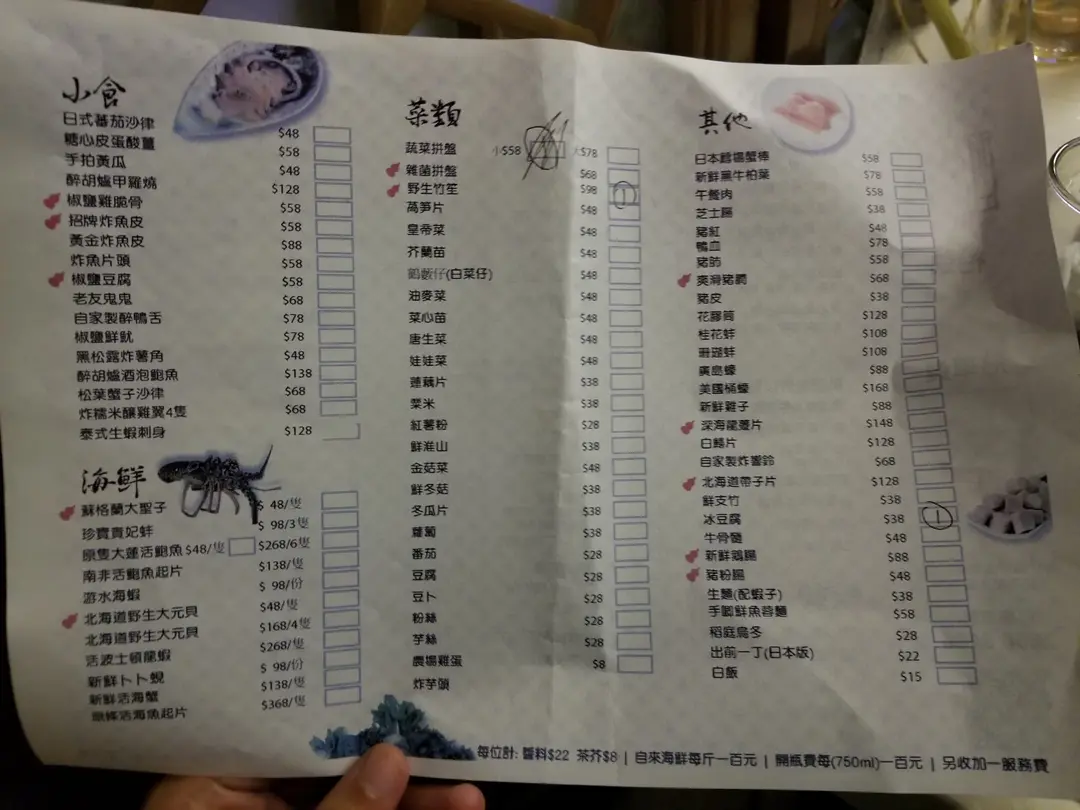 小食
日式蕃茄沙律 $48
糖心皮蛋酸薑 $58
手拍黃瓜 $48
醉胡爐甲羅燒 $128
椒鹽雞脆骨 $58
招牌炸魚皮 $58
黃金炸魚皮 $88
炸魚片頭 $58
椒鹽豆腐 $58
老友鬼鬼 $68
自家製醉鴨舌 $78
椒鹽鮮魷 $78
黑松露炸薯角 $48
醉胡爐酒泡鮑魚 $138
松葉蟹子沙律 $68
炸糯米釀雞翼4隻 $68
泰式生蝦刺身 $128
海鮮
蘇格蘭大聖子 $ 48/隻
珍寶貴妃蚌 $ 98/3隻
原隻大蓮活鮑魚 $48/隻 $268/6隻
南非活鮑魚起片 $138/隻
游水海蝦 $ 98/份
北海道野生大元貝 $48/隻
北海道野生大元貝 $168/4隻
活波士頓龍蝦 $268/隻
新鮮卜卜蜆 $ 98/份
新鮮活海蟹 $138/隻
原條活海魚起片 $368/隻
菜類
蔬菜拼盤 小$58 大$78
雜菌拼盤 $68
野生竹笙 $98
萵笋片 $48
皇帝菜 $48
芥蘭苗 $48
鶴藪仔(白菜仔) $48
油麥菜 $48
菜心苗 $48
唐生菜 $48
娃娃菜 $48
蓮藕片 $38
粟米 $38
紅薯粉 $28
鮮淮山 $38
金菇菜 $48
鮮冬菇 $38
冬瓜片 $38
蘿蔔 $38
番茄 $28
豆腐 $28
豆卜 $28
粉絲 $28
芋絲 $28
農場雞蛋 $8
炸芋頭
其他
日本鱈場蟹棒 $58
新鮮黑牛柏葉 $78
午餐肉 $58
芝士腸 $38
豬紅 $48
鴨血 $78
豬肋 $58
爽滑豬膶 $68
豬皮 $38
花膠筒 $128
桂花蚌 $108
珊瑚蚌 $108
廣島蠔 $88
美國桶蠔 $168
新鮮雞子 $88
深海龍躉片 $148
白鱔片 $128
自家製炸響鈴 $68
北海道帶子片 $128
鮮支竹 $38
冰豆腐 $38
牛骨髓 $48
新鮮鵝腸 $88
豬粉腸 $48
生麵(配蝦子) $38
手唧鮮魚蓉麵 $58
稻庭烏冬 $28
出前一丁(日本版) $22
白飯 $15
每位計: 醬料$22 茶芥$8 | 自來海鮮每斤一百元 | 開瓶費每(750ml)一百元 | 另收加一服務費